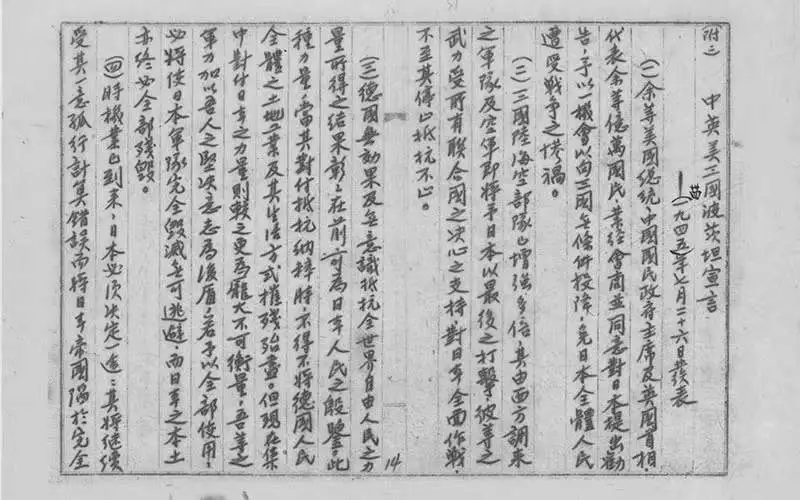 附二 中英美三國波茨坦宣言
(一九四五年七月二十六日發表
(一)余等美國總統、中國國民政府主席及英國首相、
代表余等億萬國民,業經會商並同意對日本提出勸
告,予以一機會以向三國無條件投降,免日本全體人民
遭受戰爭之慘禍。
(二)三國陸海空部隊已增強多倍,其由西方調來
之軍隊及空軍即將予日本以最後之打擊,彼等之
武力受所有聯合國之決心之支持對日本全面作戰,
不至其停止抵抗不止。
14
(三)德國無効果及無意識抵抗全世界自由人民之力
量所得之結果彰彰在前,可為日本人民之殷鑒,此
種力量,當其對付抵抗納粹時,不得不將德國人民
全體之土地工業及其生活方式摧殘殆盡。但現在集
中對付日本之力量則較之更為龐大不可衡量,吾等之
軍力加以吾人之堅決意志為後盾,若予以全部使用,
必將使日本軍隊完全毀滅無可逃避,而日本之本土
亦終必全部殘毀。
(四)時機業已到來,日本必須決定一途:其將繼續
受其一意孤行計算錯誤而將日本帝國陷於完全